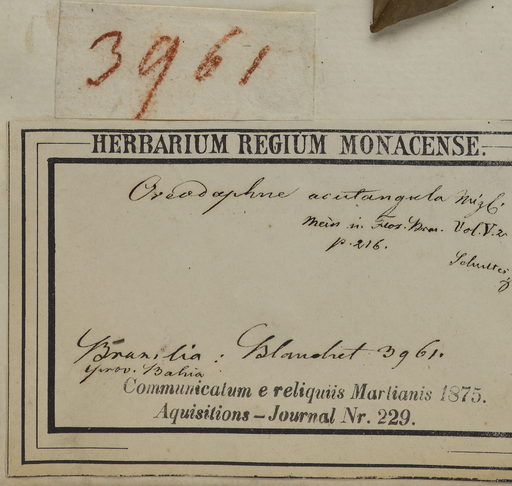 3961
HERBARIUM REGIUM MONACENSE.
Oreodaphne acutangula Miq!
Meisn in Flor. Bras. Vol. V. 2
p. 216.
Brasilia : Blanchet 3961.
prov. Bahia
Communicatum e reliquiis Martianis 1875.
Aquisitions – Journal Nr. 229.